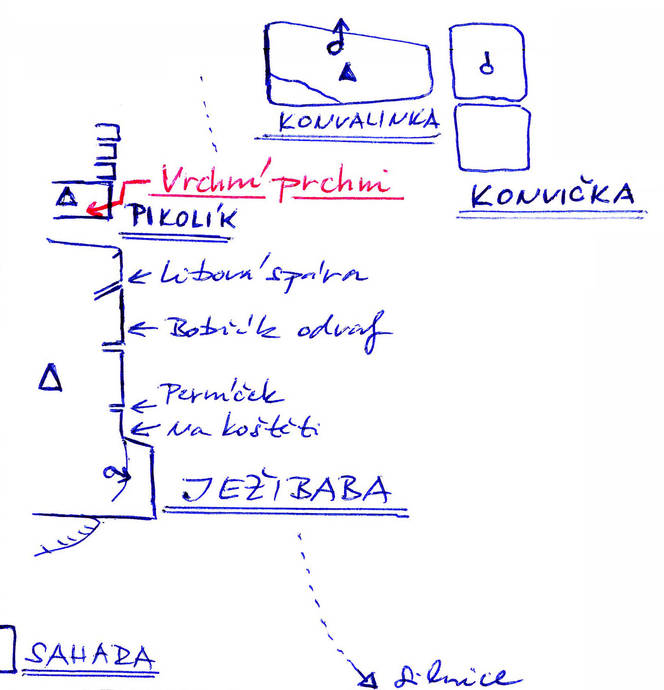 KONVALINKA
KONVIČKA
Vrchní prchni
PIKOLÍK
Libová spára
Bobřík odvah
Perníček
Na koštěti
JEŽIBABA
SAHARA
silnice